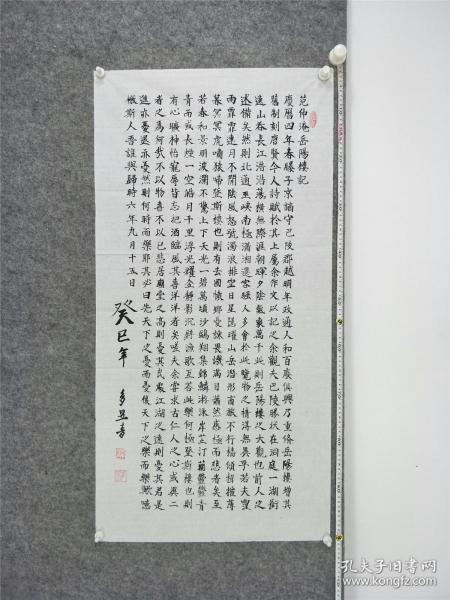 范仲淹岳陽樓記
慶曆四年春滕子京謫守巴陵郡越明年政通人和百廢俱興乃重修岳陽樓增其
舊制刻唐賢今人詩賦於其上屬余作文以記之余觀夫巴陵勝狀在洞庭一湖銜
遠山吞長江浩浩蕩蕩橫無際涯朝暉夕陰氣象萬千此則岳陽樓之大觀也前人之
述備矣然則北通巫峽南極瀟湘遷客騷人多會於此覽物之情得無異乎若夫霪
雨霏霏連月不開陰風怒號濁浪排空日星隱曜山岳潛形商旅不行檣傾楫摧薄
暮冥冥虎嘯猿啼登斯樓也則有去國懷鄉憂讒畏譏滿目蕭然感極而悲者矣至
若春和景明波瀾不驚上下天光一碧萬頃沙鷗翔集錦鱗游泳岸芷汀蘭鬱鬱青
青而或長煙一空皓月千里浮光耀金靜影沉璧漁歌互答此樂何極登斯樓也則
有心曠神怡寵辱皆忘把酒臨風其喜洋洋者矣嗟夫余嘗求古仁人之心或異二
者之為何哉不以物喜不以己悲居廟堂之高則憂其民處江湖之遠則憂其君是
進亦憂退亦憂然則何時而樂耶其必曰先天下之憂而憂後天下之樂而樂歟噫
微斯人吾誰與歸時六年九月十五日
癸巳年
孔夫子旧书网
kongfz.com